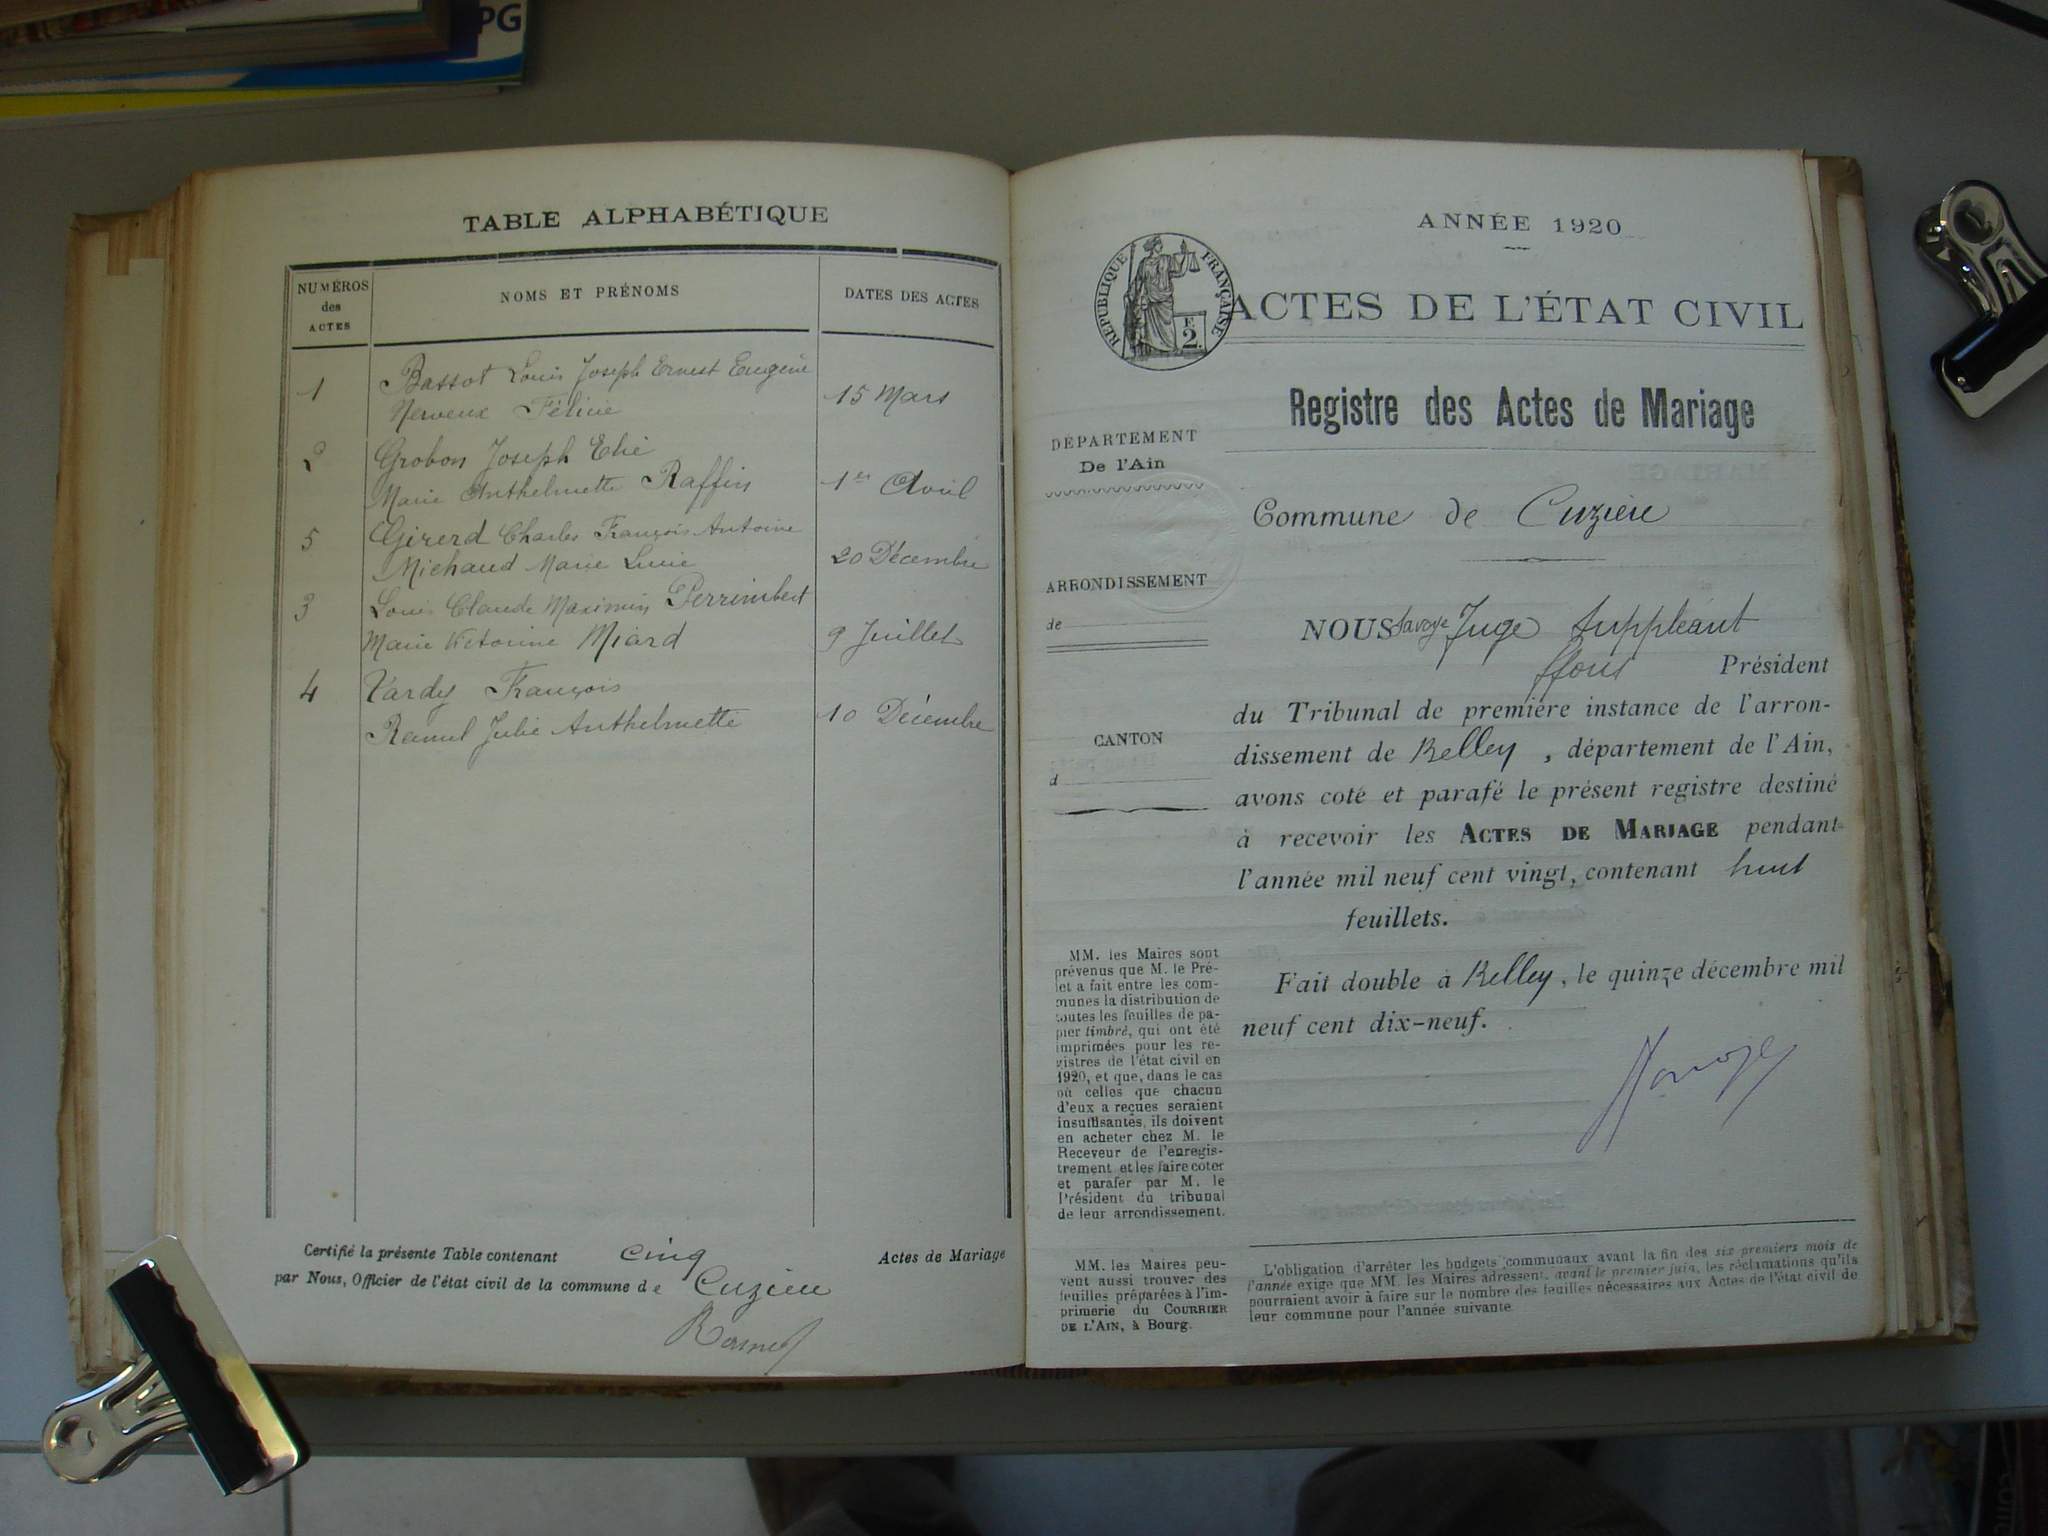 PG
TABLE ALPHABÉTIQUE
NUMÉROS
des
ACTES
NOMS ET PRÉNOMS
DATES DES ACTES
1 Bassot Louis Joseph Ernest Eugène
Nerveux Félicie 15 Mars
2 Grobon Joseph Elie
Marie Anthelmette Raffin 1er Avril
5 Girerd Charles François Antoine
Michaud Marie Lucie 20 Décembre
3 Louis Claude Maximin Perrimbert
Marie Victorine Miard 9 Juillet
4 Vardy François
Ramel Julie Anthelmette 10 Décembre
Certifié la présente Table contenant cinq Actes de Mariage
par Nous, Officier de l'état civil de la commune de Cuzieu
ANNÉE 1920
RÉPUBLIQUE FRANÇAISE
F
2.
ACTES DE L'ÉTAT CIVIL
Registre des Actes de Mariage
DÉPARTEMENT
De l'Ain
ARRONDISSEMENT
de
CANTON
d
Commune de Cuzieu
NOUS Savoye Juge Suppléant
ffons Président
du Tribunal de première instance de l'arron-
dissement de Belley, département de l'Ain,
avons coté et parafé le présent registre destiné
à recevoir les ACTES DE MARIAGE pendant
l'année mil neuf cent vingt, contenant huit
feuillets.
Fait double à Belley, le quinze décembre mil
neuf cent dix-neuf.
Savoye
MM. les Maires sont
prévenus que M. le Pré-
fet a fait entre les com-
munes la distribution de
toutes les feuilles de pa-
pier timbré, qui ont été
imprimées pour les re-
gistres de l'état civil en
1920, et que, dans le cas
où celles que chacun
d'eux a reçues seraient
insuffisantes, ils doivent
en acheter chez M. le
Receveur de l'enregis-
trement et les faire coter
et parafer par M. le
Président du tribunal
de leur arrondissement.
MM. les Maires peu-
vent aussi trouver des
feuilles préparées à l'im-
primerie du COURRIER
DE L'AIN, à Bourg.
L'obligation d'arrêter les budgets communaux avant la fin des six premiers mois de
l'année exige que MM. les Maires adressent, avant le premier juin, les réclamations qu'ils
pourraient avoir à faire sur le nombre des feuilles nécessaires aux Actes de l'état civil de
leur commune pour l'année suivante